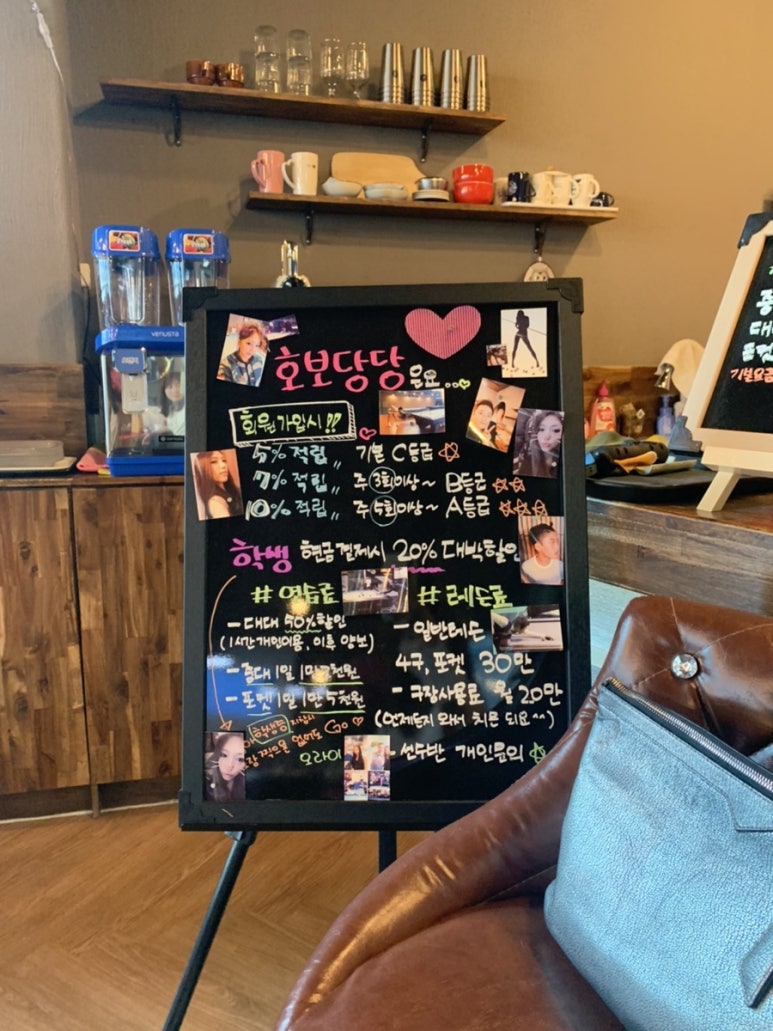 홍보당당은요..
회원가입시!!
5% 적립 기본 C등급
7% 적립 주 3회이상~ B등급
10% 적립 주 5회이상~ A등급
학생 현금결제시 20% 대박할인
# 연습료
- 대대 50%할인
(1시간 개인이용, 이후 양보)
- 중대 1일 1만2천원
- 포켓 1일 1만5천원
학생증 지참시
없어도 Go
오라이
# 레슨료
- 일반레슨
4구, 포켓 30만
- 구장사용료 월 20만
(언제든지 와서 치믄 되요^^)
- 선수반 개인문의
VENUSTA
대
기본요금